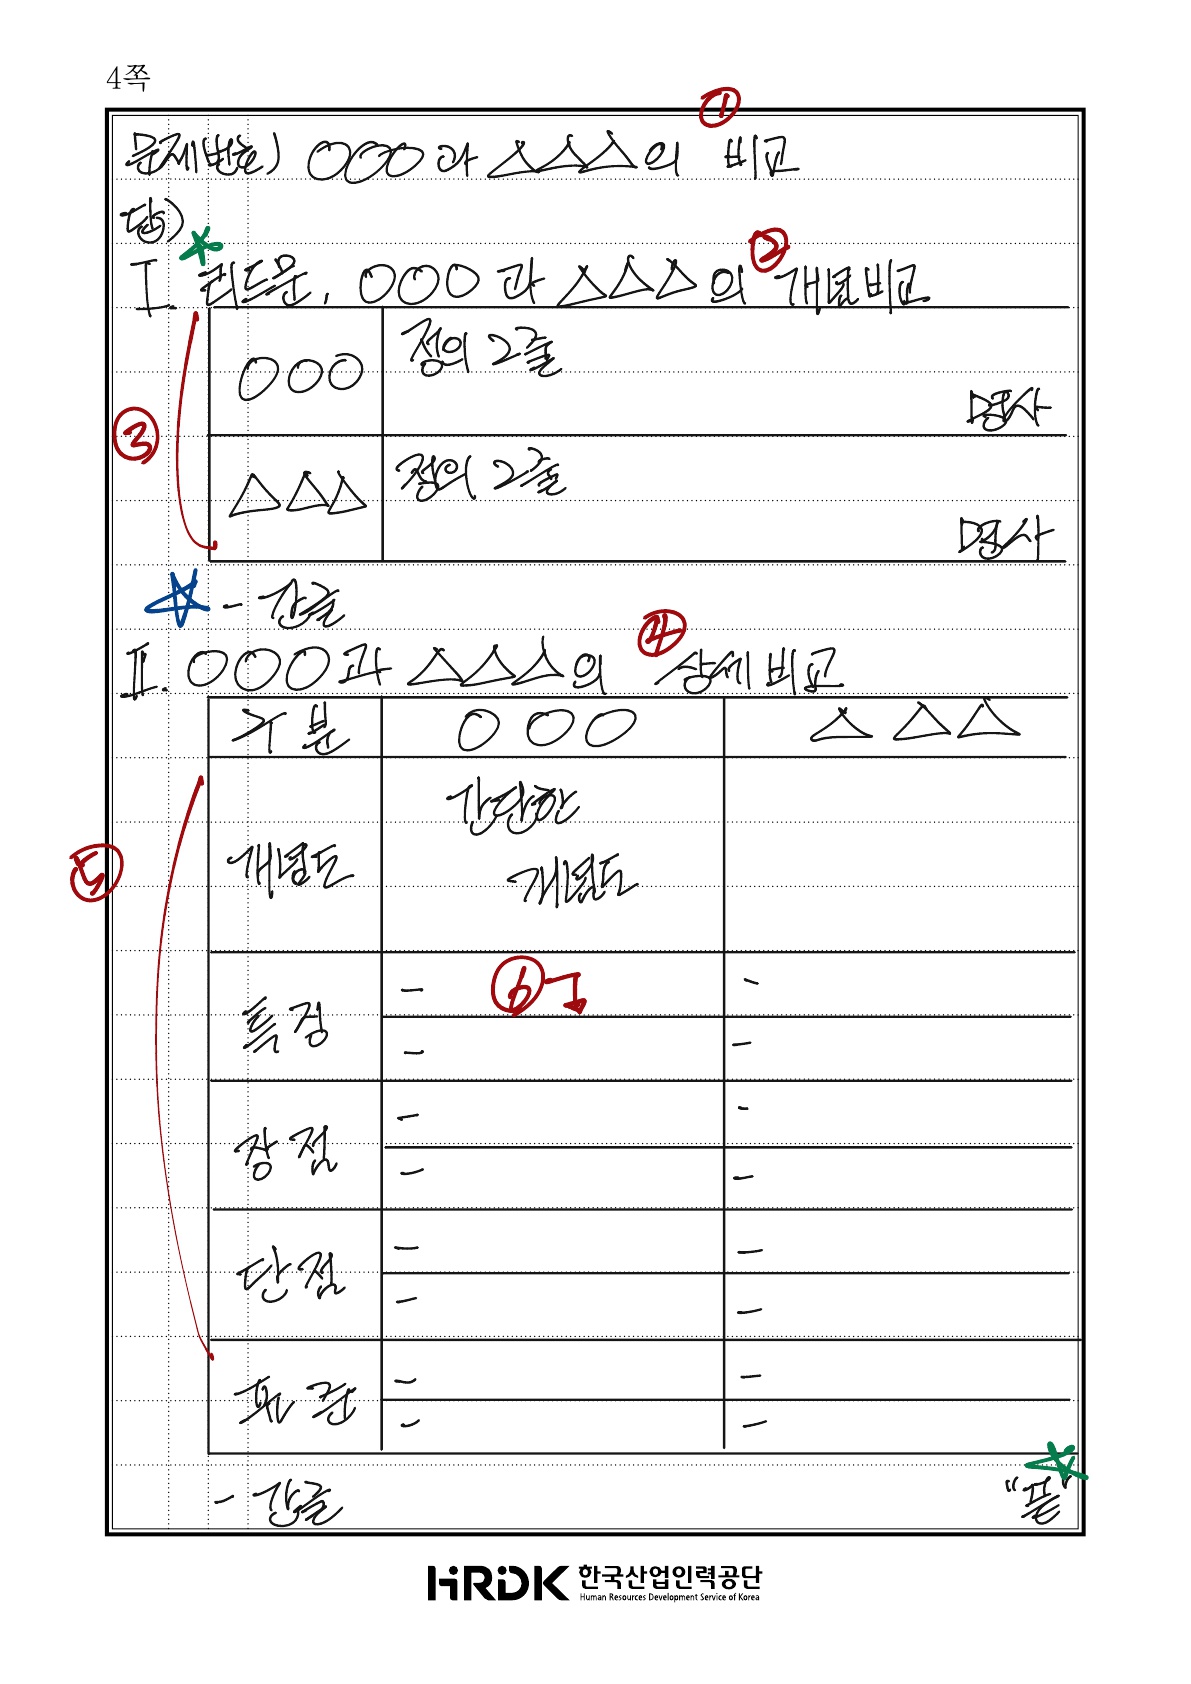 4쪽
①
문제번호) ○○○과 △△△의 비교
답)
②
I. 리드문, ○○○과 △△△의 개념비교
○○○ 정의 2줄
명사
③
△△△ 정의 2줄
명사
- 간글
④
II. ○○○과 △△△의 상세비교
구분 ○○○ △△△
간단한
⑤ 개념도 개념도
⑥
- -
특징
- -
- -
장점
- -
- -
단점
- -
- -
- -
- 간글 "끝"
HRDK 한국산업인력공단
Human Resources Development Service of Korea